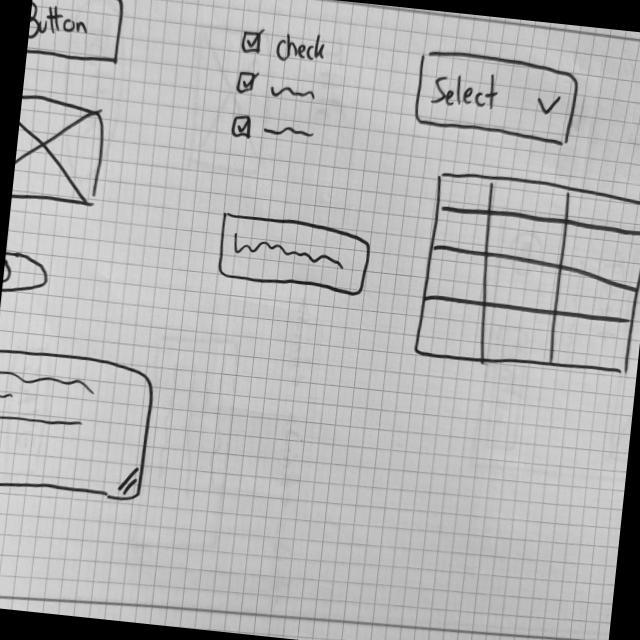 Button
check
Select